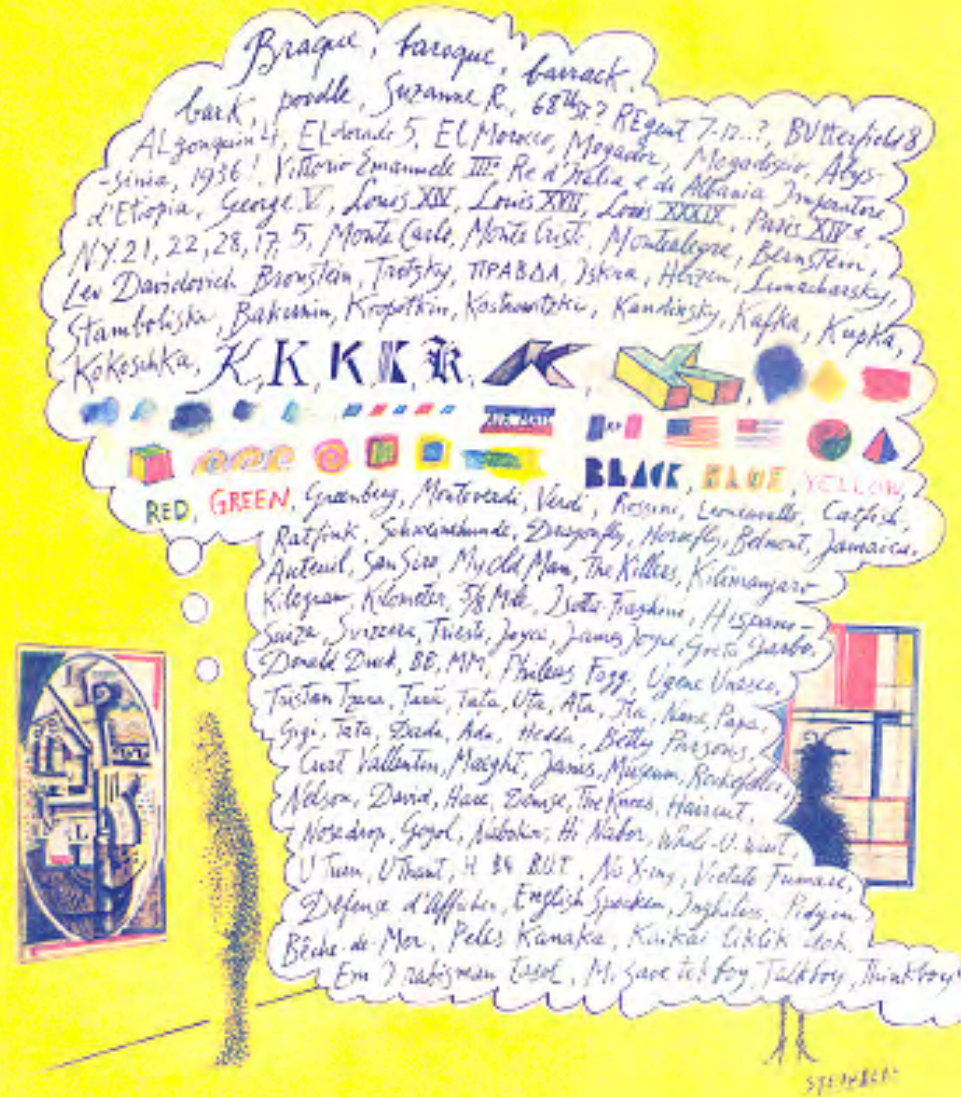 Braque, baroque, barrack,
bark, poodle, Suzanne R., 68th St.? REgent 7-12..?, BUtterfield 8,
ALgonquin 4, ELdorado 5, El Morocco, Mogador, Mogadiscio, Abys-
-sinia, 1936! Vittorio Emanuele III° Re d'Italia e di Albania Imperatore
d'Etiopia, George V, Louis XIV, Louis XVII, Louis XXXIX, Paris XIVe,
NY. 21, 22, 28, 17, 5, Monte Carlo, Monte Cristo, Montealegre, Bernstein,
Lev Davidovich Bronstein, Trotzky, ПРАВДА, Iskra, Herzen, Lunacharsky,
Stambolisky, Bakunin, Kropotkin, Kostrowitzki, Kandinsky, Kafka, Kupka,
Kokoschka, K, K, K, K, K, K, K,
AIR MAIL
BLACK, BLUE, YELLOW,
RED, GREEN, Greenberg, Monteverdi, Verdi, Rossini, Leoncavallo, Catfish,
Ratfink, Schweinehunde, Dragonfly, Horsefly, Belmont, Jamaica,
Auteuil, San Siro, My Old Man, The Killers, Kilimanjaro
Kilogram, Kilometer, 5/8 Mile, Isotta-Fraschini, Hispano-
Suiza, Svizzera, Trieste, Joyce, James Joyce, Greta Garbo,
Donald Duck, BB, MM, Phileas Fogg, Ugene Unesco,
Tristan Tzara, Tata, Uta, Ata, Ita, Nane, Papa,
Gigi, Tata, Dada, Ada, Hedda, Betty Parsons,
Curt Vallentin, Maeght, Janis, Museum, Rockefeller,
Nelson, David, Hare, Denise, The Knees, Haircut,
Nosedrop, Gogol, Nabokov, Hi Nabor, What-U-Want,
U Turn, UThant, No X-ing, Vietato Fumare,
Défense d'Afficher, English Spoken, Inghilese, Pidgin
Bêche-de-Mer, Peles Kanaka, Kaikai liklik dok.
Em, Talkboy, Thinkboy
STEINBERG